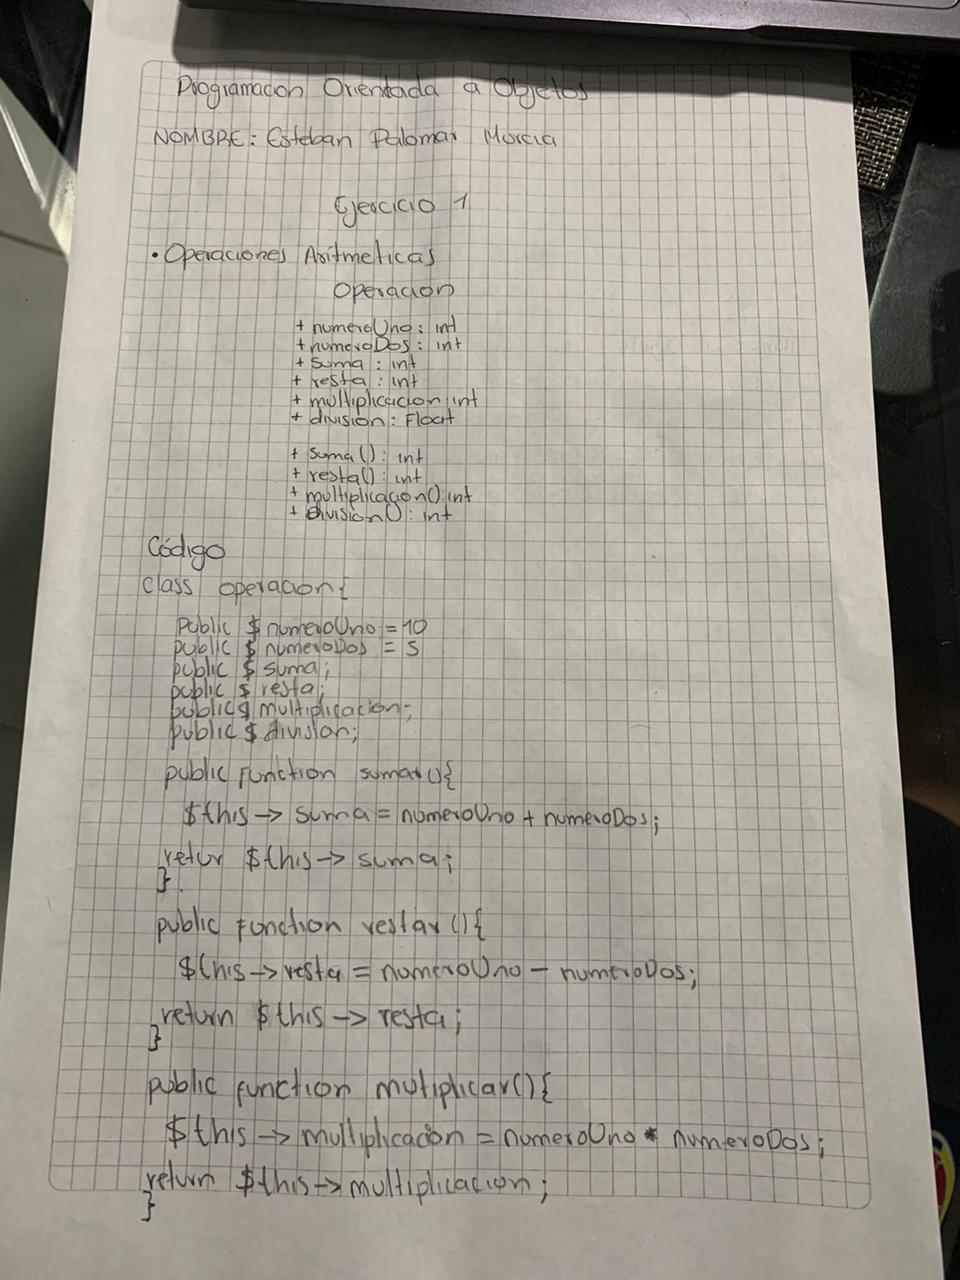 Programacion Orientada a Objetos
NOMBRE: Esteban Palomar Murcia
Ejercicio 1
• Operaciones Aritmeticas
Operacion
+ numeroUno: int
+ numeroDos: int
+ suma : int
+ resta : int
+ multiplicacion: int
+ division: Float
+ suma(): int
+ resta(): int
+ multiplicacion() int
+ division(): int
Código
class operacion{
public $ numeroUno = 10
public $ numeroDos = 5
public $ suma;
public $ resta;
public $ multiplicacion;
public $ division;
public Function sumar(){
$this -> suma = numeroUno + numeroDos;
retur $this -> suma;
}
public Function restar (){
$this -> resta = numeroUno - numeroDos;
return $this -> resta;
}
public function mutiplicar(){
$this -> multiplicacion = numeroUno * numeroDos;
return $this -> multiplicacion;
}